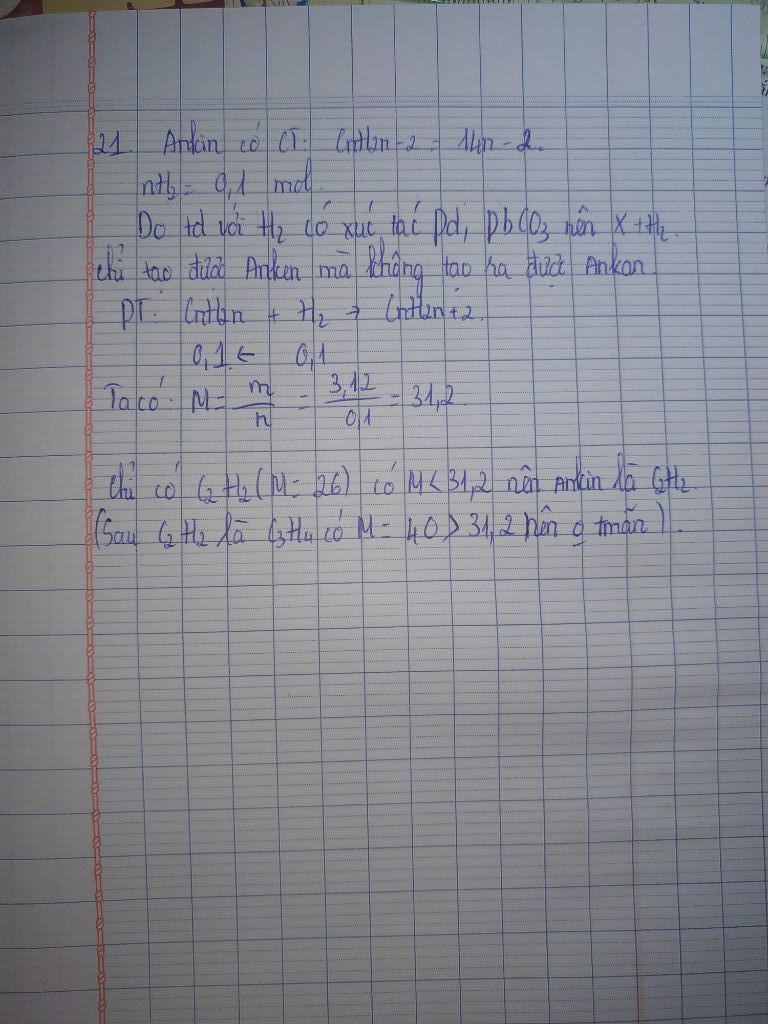 21. Ankin có CT: CnH2n-2 = 14n-2.
nH2 = 0,1 mol
Do td với H2 có xúc tác Pd, PbCO3 nên X+H2
chỉ tạo được Anken mà không tạo ra được Ankan
PT: CnH2n + H2 → CnH2n+2.
0,1 ← 0,1
Ta có: M = m/n = 3,12/0,1 = 31,2
Chỉ có C2H2 (M = 26) có M < 31,2 nên Ankin là C2H2.
(Sau C2H2 là C3H4 có M = 40 > 31,2 nên o tmãn).